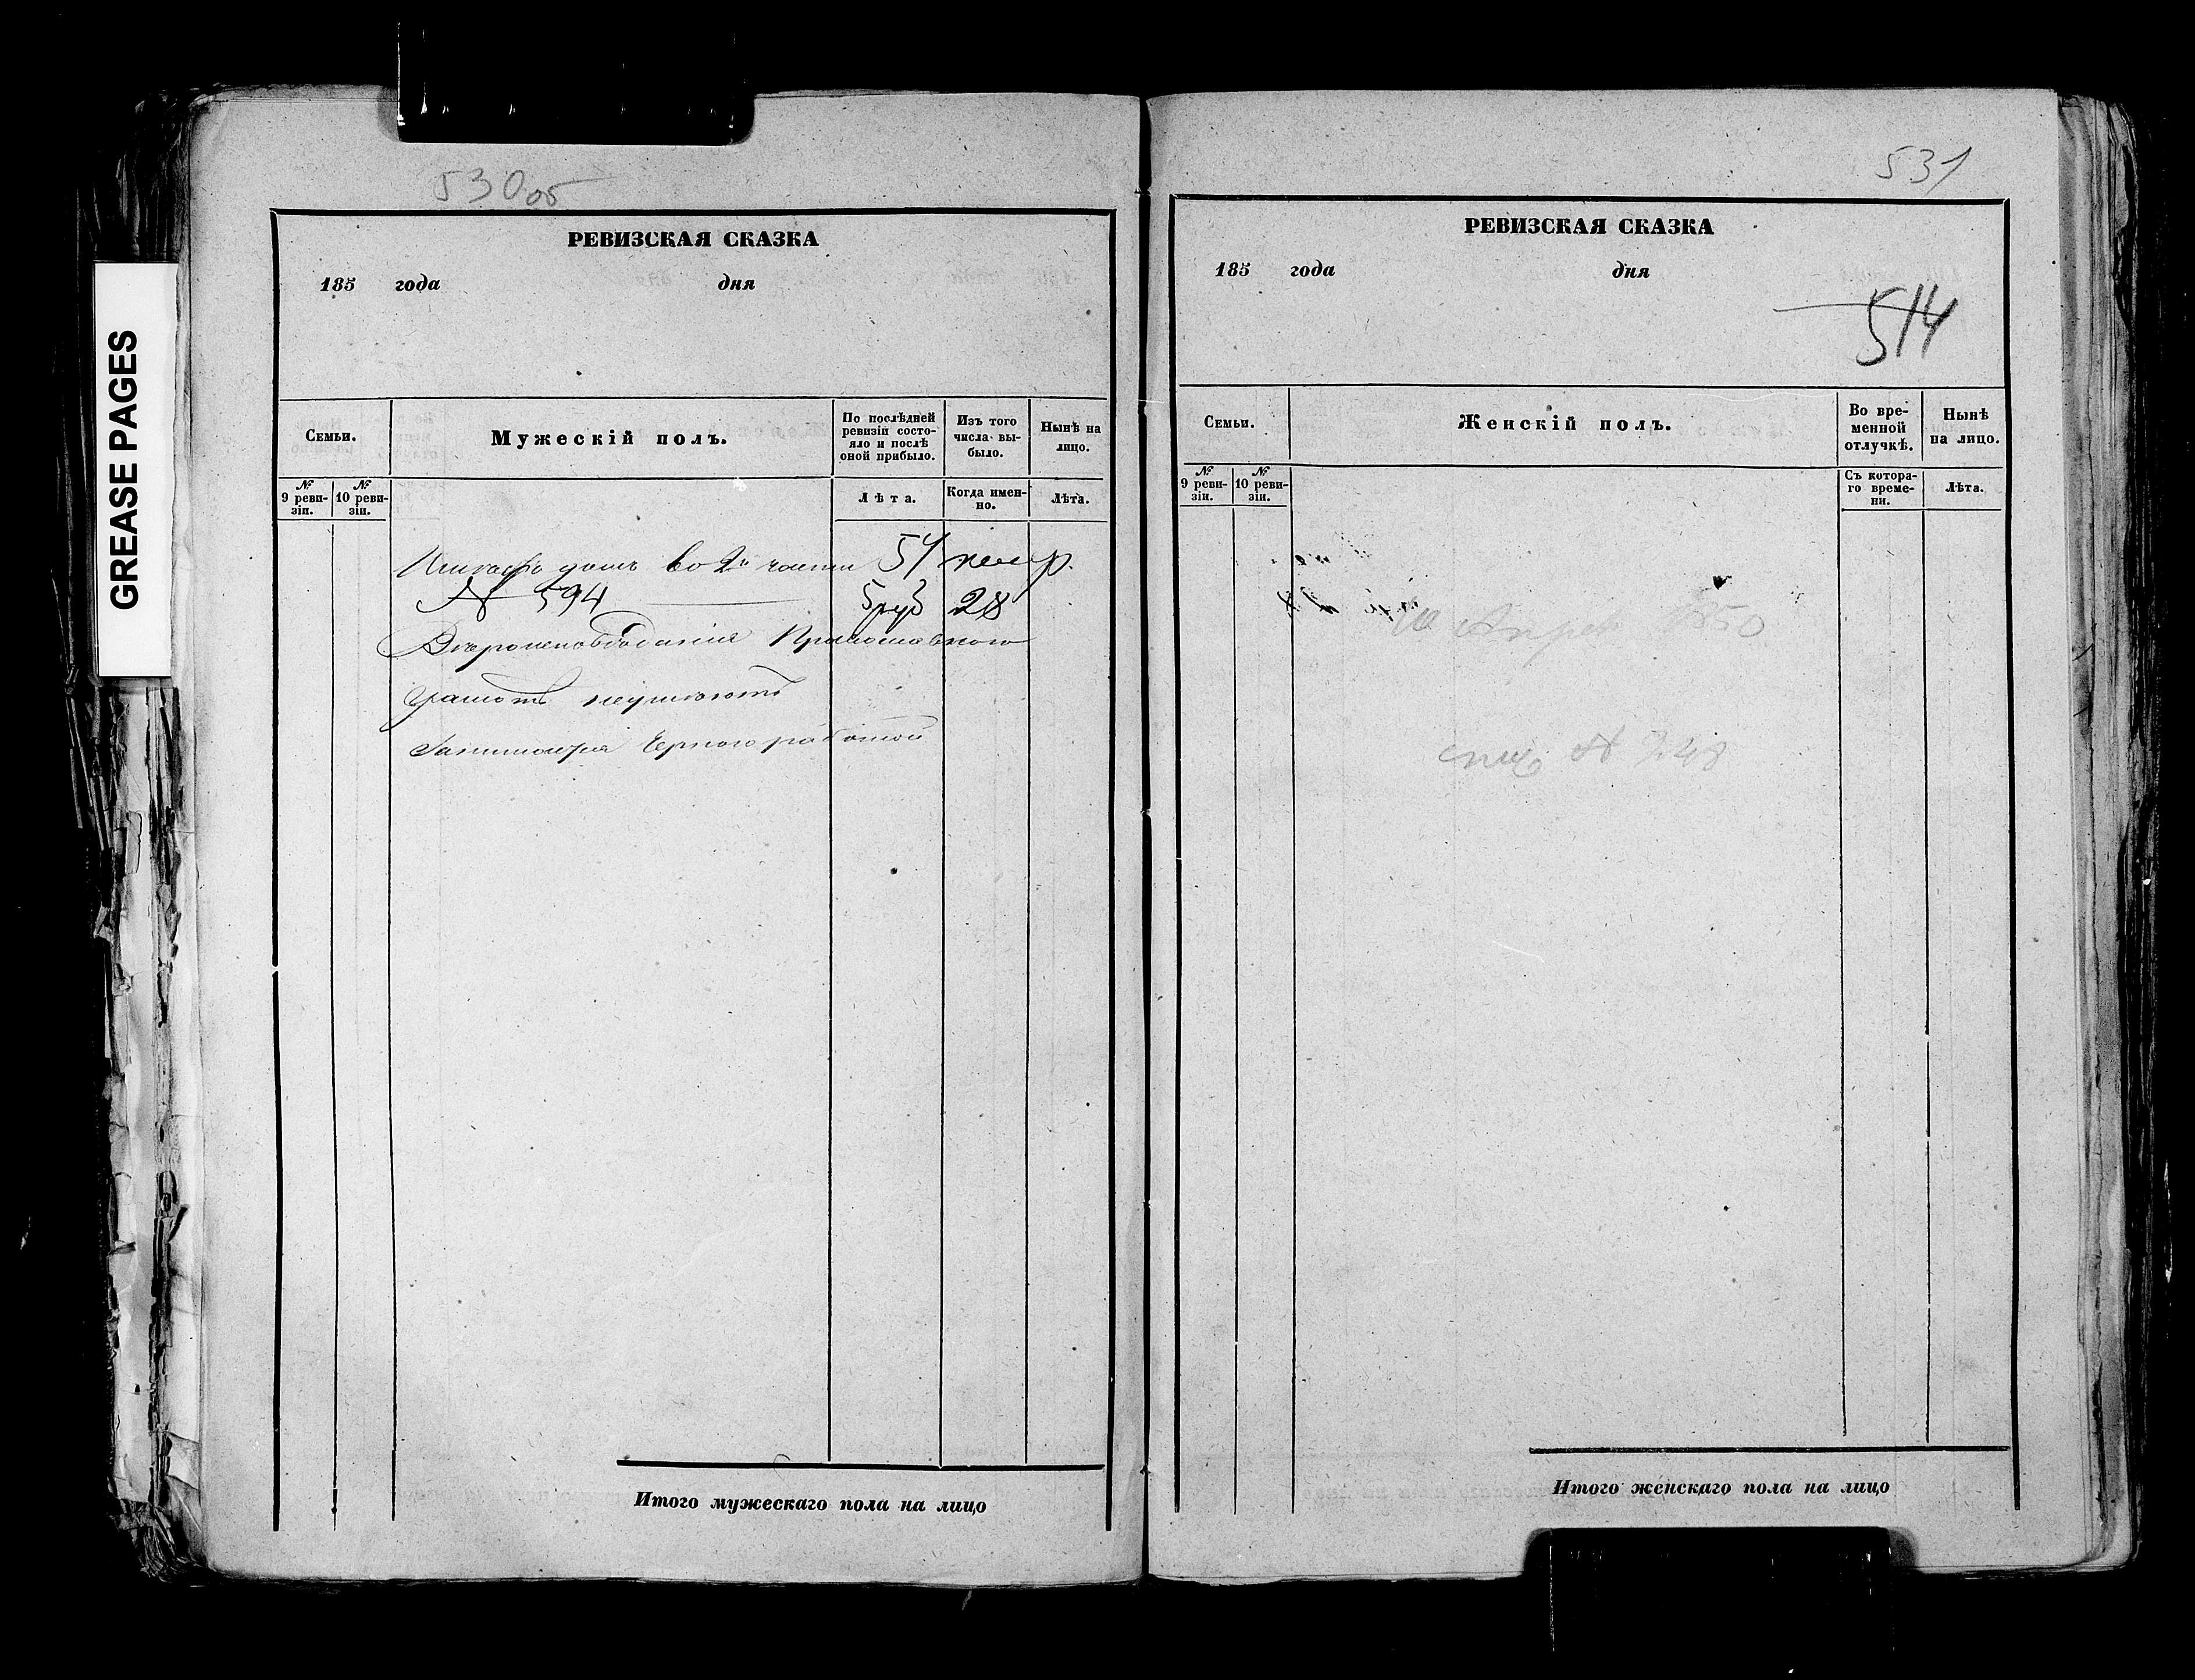 GREASE PAGES
530 об
РЕВИЗСКАЯ СКАЗКА
185 года дня
Семьи.
Мужескій полъ.
По послѣдней ревизіи состояло и послѣ оной прибыло.
Изъ того числа выбыло.
Нынѣ на лицо.
№ 9 ревизіи.
№ 10 ревизіи.
Лѣта.
Когда именно.
Лѣта.
домъ во 2й части
№ 594
5 руб 28
Вѣроисповѣданія Православнаго
грамотѣ неумѣютъ
Занимаюся Черною работой
Итого мужескаго пола на лицо
531
РЕВИЗСКАЯ СКАЗКА
185 года дня
514
Семьи.
Женскій полъ.
Во временной отлучкѣ.
Нынѣ на лицо.
№ 9 ревизіи.
№ 10 ревизіи.
Съ котораго времени.
Лѣта.
1850
№
Итого женскаго пола на лицо